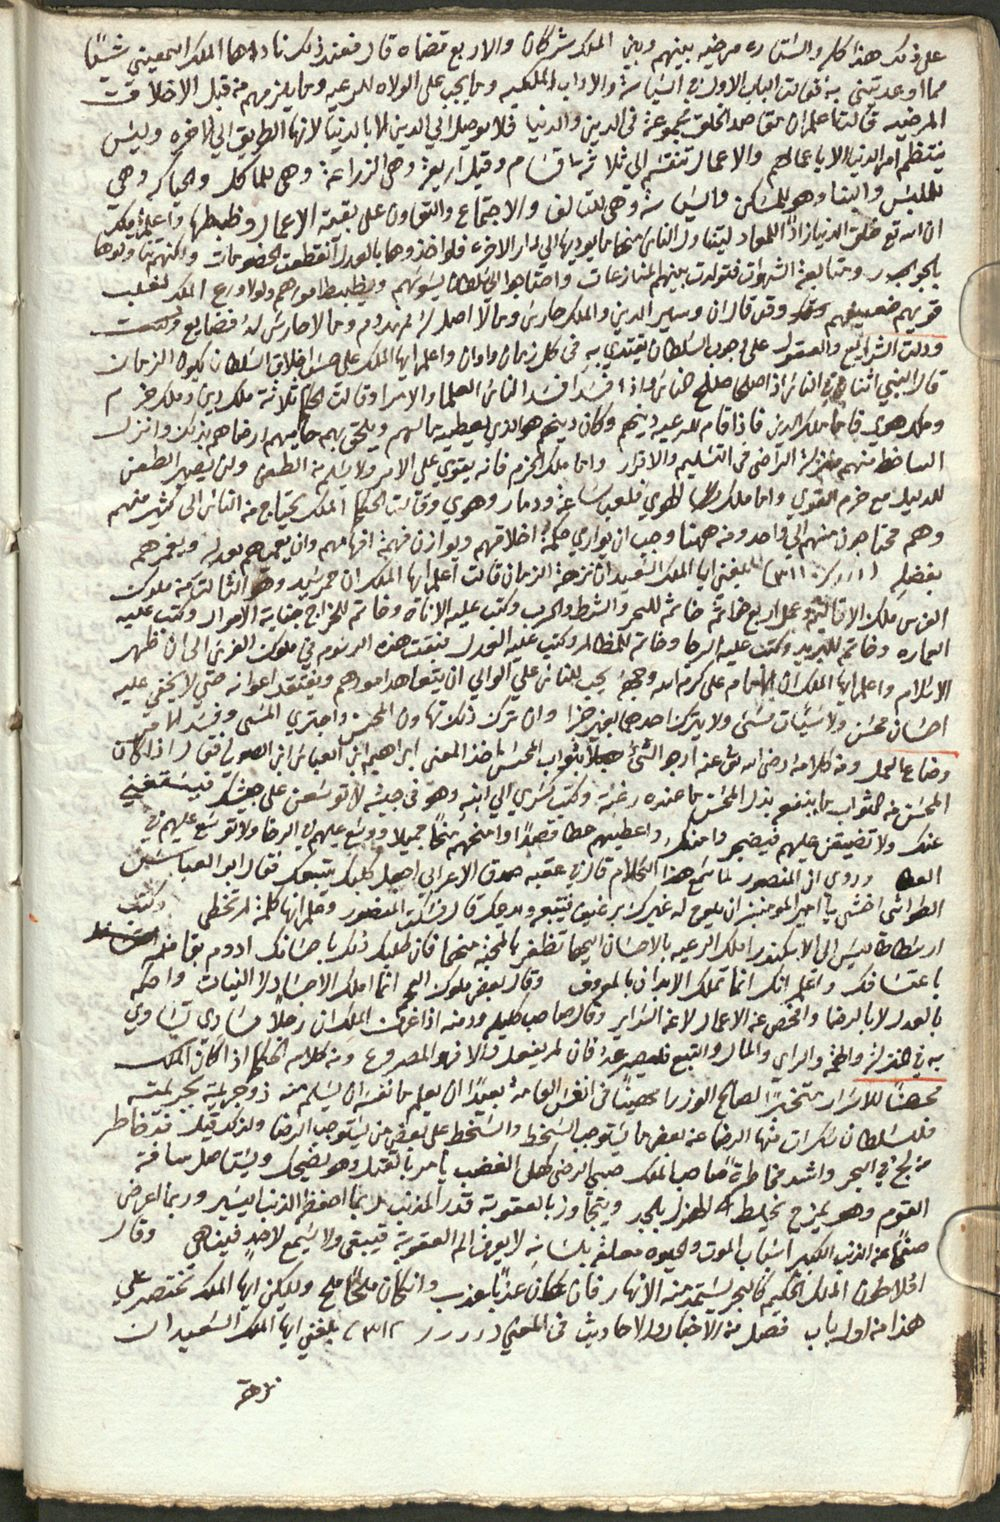 على ذلك هذا كله والستاره مرخيه بينهم وبين الملك شركان والاربع قضاه قال فعند ذلك نادها الملك اسمعيني شيئا
مما اوعدتيني به فقالت الباب الاول في السياسة والاداب الملكيه وما يجب على الولاه للرعيه وما يلزمهم من قبل الاخلاقت
المرضيه قالت اعلم ان مقاصد الخلق مجموعة في الدين والدنيا فلا يوصل الي الدين الا بالدنيا لانها الطريق الي الاخره وليس
ينتظم امر الدنيا الا باعمالهم والاعمال تنقسم الي ثلاثة اقسام وقيل اربعة وهي الزراعة وهي للماكل والحياكه وهي
للملبس والبنا وهو للمسكن والسياسة وهي للتالف والاجتماع والتعاون على بقية الاعمال وظبطها واعلم يا ملك
ان الله تع خلق الدنيا زادا للمعاد ليتناول الناس منها ما يوديها الي دار الاخره فلو اخذوها بالعدل انقطعت الخصومات ولاكنهم تناولوها
بالجور ومتابعة الشهوات فتولدت بينهم المنازعات واحتاجوا الي سلطان يسوسهم ويظبط امورهم ولولا ورع الملك لغلب
قويهم ضعيفهم وقد قال ان وسير الدين والملك حارس وما لا اصل له مهدوم وما لا حارس له فضايع
ودلت الشرايع والعقول على وجوب السلطان يقتدي به في كل زمان واوان واعلم ايها الملك على حسن اخلاق السلطان يكون الزمان
قال النبي اثنان في الناس اذا صلحا صلح الناس واذا فسدا فسد الناس العلما والامرا وقالت الحكما ثلاثة ملك دين وملك حزم
وملك هوي فاما ملك الدين فاذا قام للرعيه دينهم وكان دينهم هو الذي يعطيهم مالهم ويلحق بهم ما عليهم ارضاهم بذلك وانزل
الساخط منهم منزلة الراضي في التسليم والاقرار واما ملك الحزم فانه يقوي على الامر ولا يسلم من الطعن ولن يضر الطعن
للذليل مع حزم القوي واما ملك الهوي فلعب ساعة ودمار وهوي وقالت الحكما الملك يحتاج من الناس الى كثير منهم
وهم محتاجون منهم الي واحد ومن ههنا وجب ان يوازي حلمه اخلاقهم ويوازن فهمه افهامهم وان يعمهم بعدله ويغمرهم
بفضله (ااررر/٣١١) بلغني ايها الملك السعيد ان نزهة الزمان قالت اعلم ايها الملك ان جمرشيد وهو الثالث من ملوك
الفرس ملك الاقاليم وعمل اربع خواتم خاتم للحر والشرط والحرب وكتب عليه الاناة وخاتم للخراج جباية الاموال وكتب عليه
العماره وخاتم للبريد وكتب عليه الرخا وخاتم للمظالم وكتب عليه العدل فبقت هذه الرسوم في ملوك الفرس الي ان ظهر
الاسلام واعلم ايها الملك ان الامام على كرم الله وجهه يجب للناس علي الوالي ان يتعاهد امورهم ويفتقد اعوانه حتي لا يخفي عليه
احسان محسن ولا سيئات مسئ ولا يترك احدهما بغير جزا وان ترك ذلك تهاون المحسن واجتري المسى وفسد الامر
وضاع العمل ومن كلامه رضي الله عنه ازجر الشئ بثواب المحسن اخذ المعنى ابراهيم ابن العباس ابن الصولي فقال اذا كان
المحسن من الثواب ما ينفعه بذل المحسن ما عنده رغبة وكتب كسري الي ابنه وهو في جيشه لا توسعن على جيشك فيستغني
عنك ولا تضيقن عليهم فيضجر وامنك واعطيهم عطا قصدا وامنحهم منحا جميلا ووسع عليهم في الرخا ولا توسع عليهم في
العطا وروي ان المنصور لما سمع هذا الكلام قال في عقبه صدق الاعرابي اجعل كلبك يتبعك فقال ابو العباس
الطواشي اخشى يا امير المومنين ان يلوح له غيرك برغيف فيتبعه ويدعك قال فسكت المنصور وعلم انها كلمة لم تخطي وكتب
ارسطاطاليس الى الاسكندر املك الرعيه بالاحسان اليها تظفر بالمحبة منها فان طلبك ذلك باحسانك ادوم بقا منه
باعتسافك واعلم انك انما تملك الابدان بالمعروف وقال بعض ملوك العجم انما املك الاجساد لا النيات واحكم
بالعدل لا بالرضا وافحص عن الاعمال لا عن السراير وقال صاحب كليله ودمنه اذا عرف الملك ان رجلا يساوي
به في المنزله والحمة والراي والمال والتبع فليصرعه فان لم يفعل فالا فهو المصروع ومن كلام الحكما اذا كان الملك
محصنا للاسرار متخيرا لصالح الوزرا مهيبا في انفس العامة بعيدا ان يعلم ما نفسه ان يسلم منه ذو جريمة بجريمته
فللسلطان سكرات منها الرضا عن بعض ما يستوجب السخط والسخط على بعض من يستوجب الرضا ولذلك قيل قد خاطر
من لج في البحر واشد مخاطرة صاحب الملك صبي الرضى كهل الغضب يامر بالقتل وهو يضحك ويستاصل سافة
القوم وهو يمزح يخلط الهزل بالجد ويتجاوز بالعقوبة قدر المذنب لربما احفظ الذنب اليسير وربما اعرض
صفحا عن الذنب الكبير اسباب الموت والحيوه معلقة بلسانه لا يعرف الم العقوبة فيبقى ولا يسمع لاحد فيناهي وقال
افلاطون الملك الحكيم كالبحر يستمد منه الانهار فان كان عذبا عذبت وان كان ملحا ملح وليكن ايها الملك نختصر على
هذا من اول باب فصل من الاخبار والاحاديث في المعني ررررر ٣١٢ بلغني ايها الملك السعيد ان
نزهة